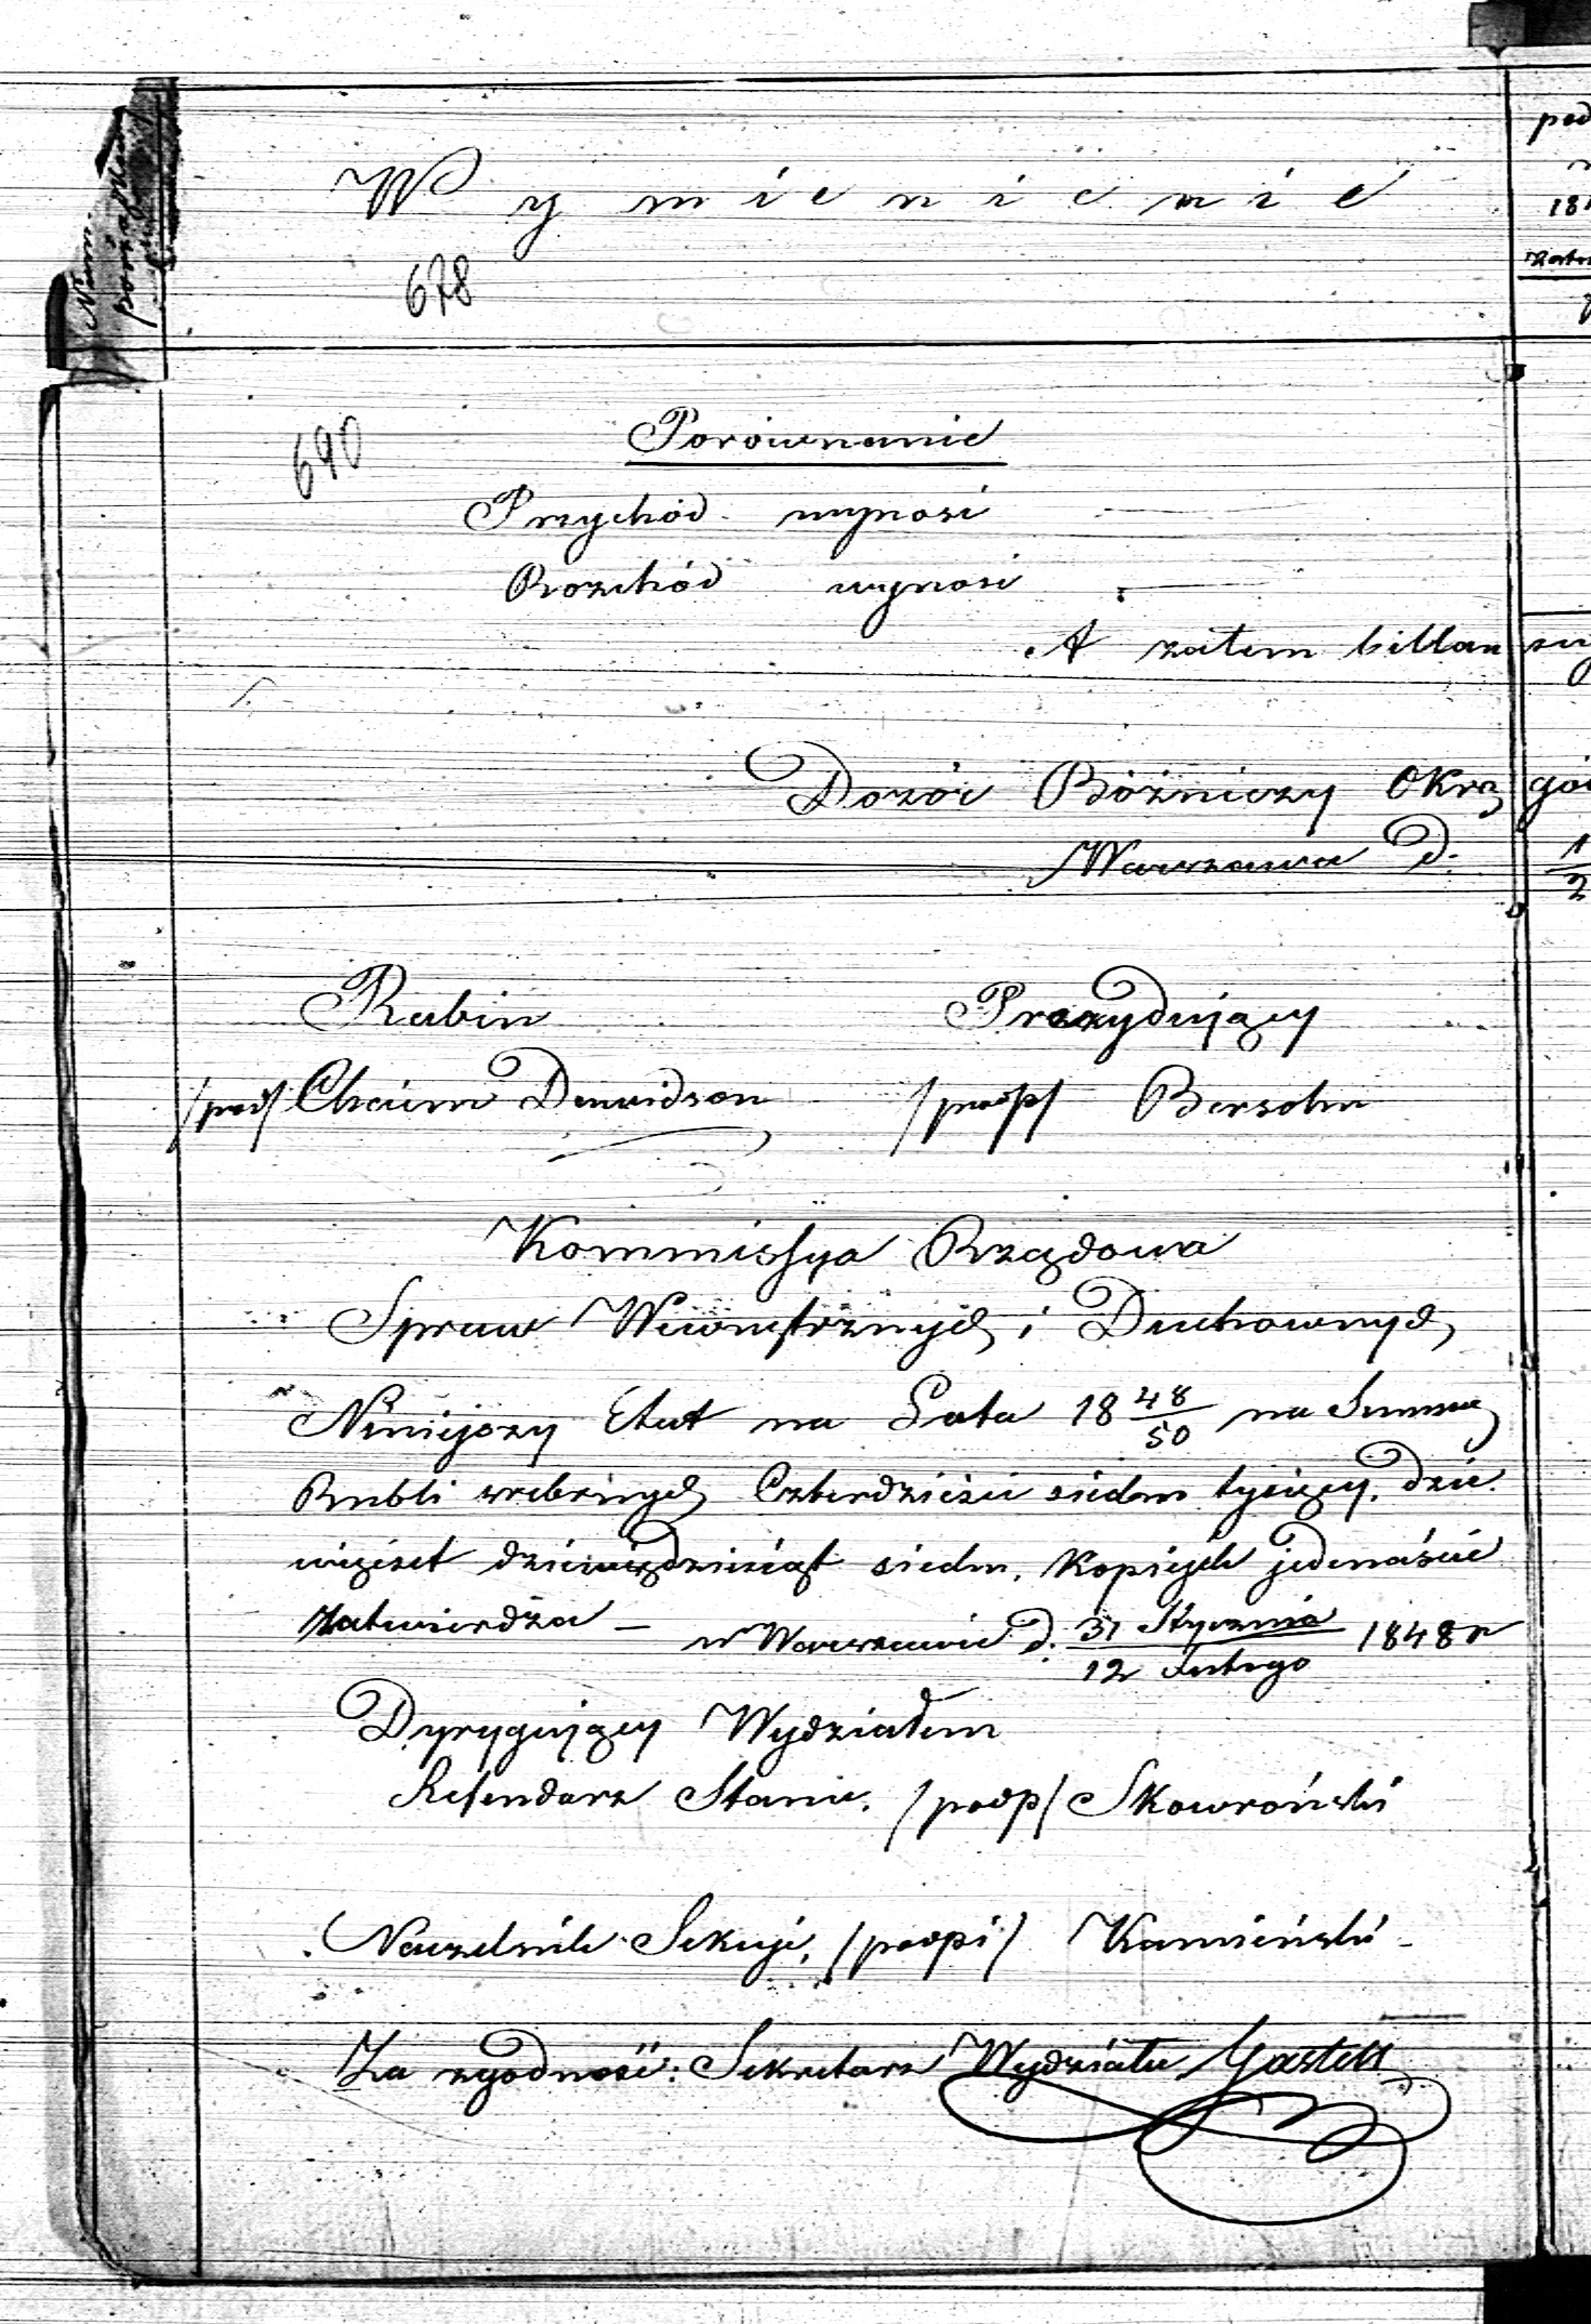 Wymienienie
678
690
Porównanie
Przychód wynosi
Rozchód wynosi
A zatem billan
Dozór Bóżniczy Okrę
Warszawa d.
Rabin Prezydujący
/pod/ Chaim Dawidson /podp/ Bersohn
Kommissya Rządowa
Spraw Wewnętrznych i Duchownych
Niniejszy Etat na Lata 18 48/50 na Summę
Rubli srebrnych Czterdzieści siedm tysięcy, dzie
więćset dziewięćdziesiąt siedm, Kopiejek jedenaście
zatwierdza — w Warszawie d. 31 Stycznia/12 Lutego 1848 r
Dyrygujący Wydziałem
Referendarz Stanu, /podp/ Skowroński
Naczelnik Sekcyi, /podpi/ Kamieński
Za zgodność: Sekretarz Wydziału